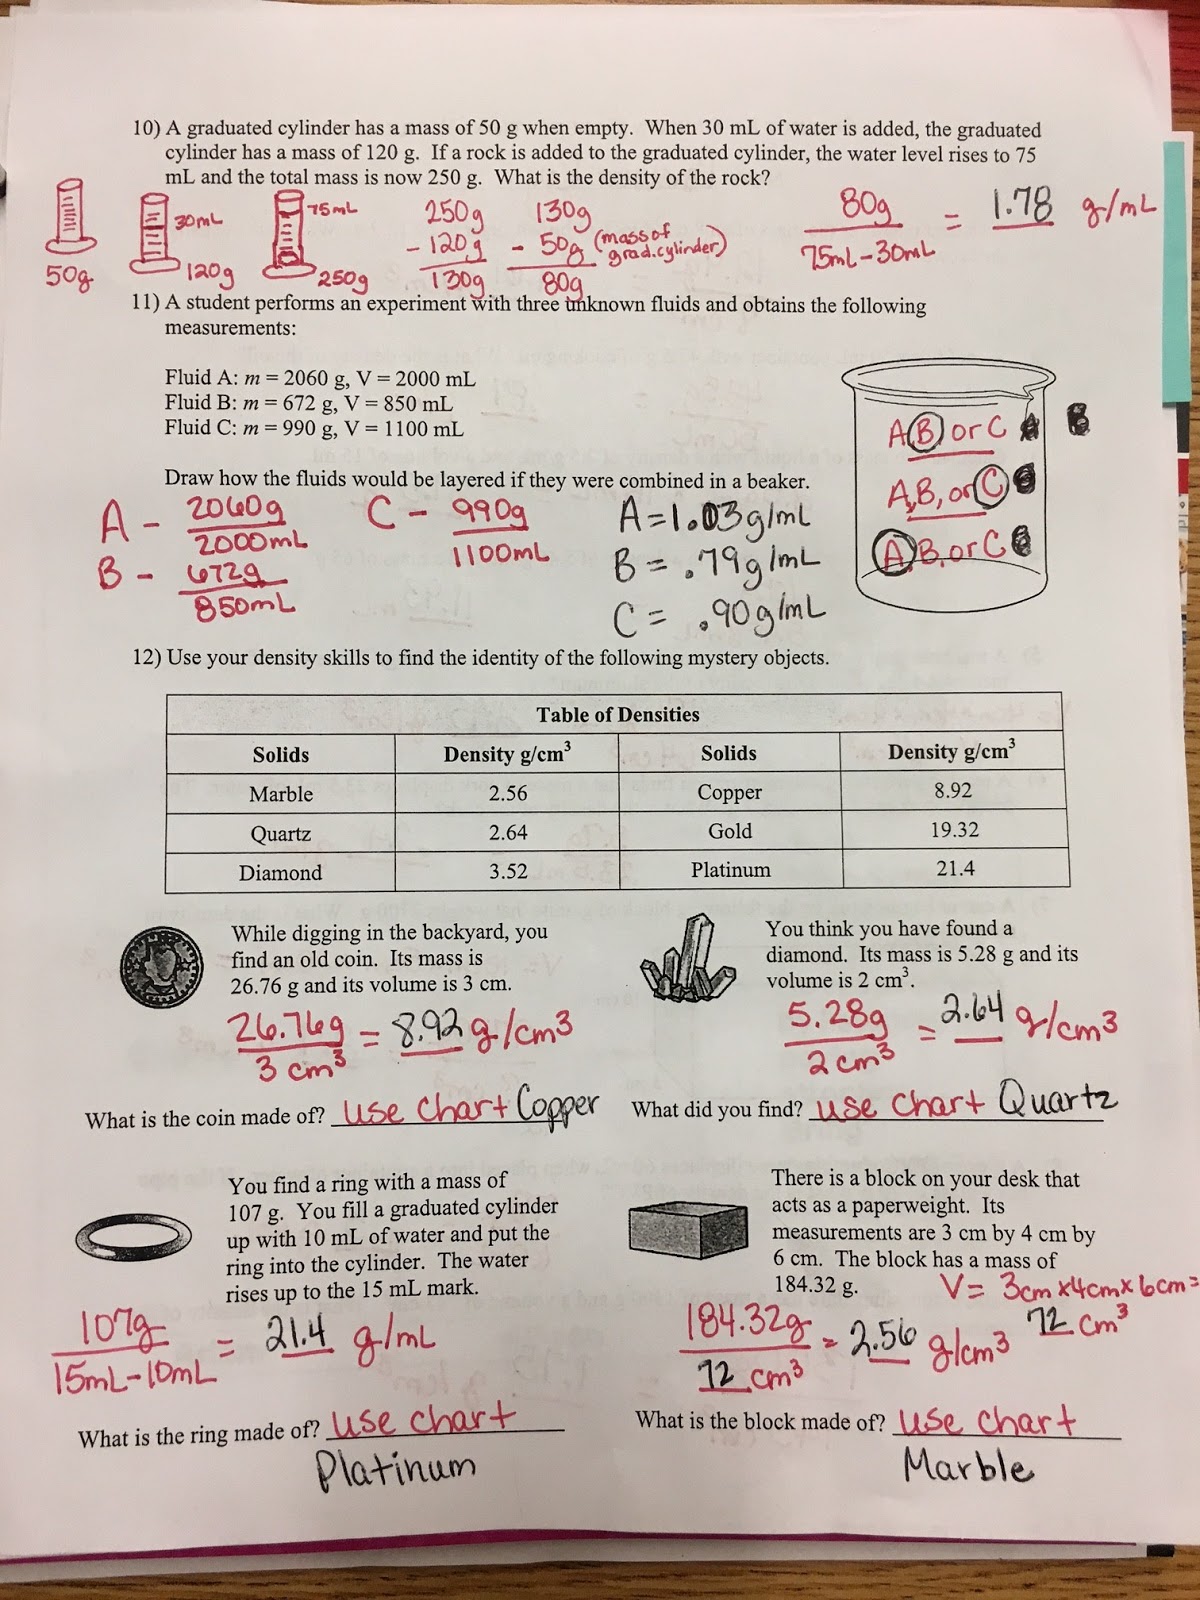 10) A graduated cylinder has a mass of 50 g when empty. When 30 mL of water is added, the graduated
cylinder has a mass of 120 g. If a rock is added to the graduated cylinder, the water level rises to 75
mL and the total mass is now 250 g. What is the density of the rock?
50g
30mL
120g
75mL
250g
250g
- 120g
130g
130g
- 50g (mass of grad.cylinder)
80g
80g
75mL-30mL
= 1.78 g/mL
11) A student performs an experiment with three unknown fluids and obtains the following
measurements:
Fluid A: m = 2060 g, V = 2000 mL
Fluid B: m = 672 g, V = 850 mL
Fluid C: m = 990 g, V = 1100 mL
Draw how the fluids would be layered if they were combined in a beaker.
A - 2060g
2000mL
B - 672g
850mL
C - 990g
1100mL
A=1.03g/mL
B = .79g/mL
C = .90g/mL
A,B, or C B
A,B, or C
A,B, or C
12) Use your density skills to find the identity of the following mystery objects.
Table of Densities
Solids Density g/cm³ Solids Density g/cm³
Marble 2.56 Copper 8.92
Quartz 2.64 Gold 19.32
Diamond 3.52 Platinum 21.4
While digging in the backyard, you
find an old coin. Its mass is
26.76 g and its volume is 3 cm.
26.76g = 8.92 g/cm3
3 cm3
What is the coin made of? use chart Copper
You think you have found a
diamond. Its mass is 5.28 g and its
volume is 2 cm³.
5.28g = 2.64 g/cm3
2 cm3
What did you find? use chart Quartz
You find a ring with a mass of
107 g. You fill a graduated cylinder
up with 10 mL of water and put the
ring into the cylinder. The water
rises up to the 15 mL mark.
107g = 21.4 g/mL
15mL-10mL
What is the ring made of? use chart
Platinum
There is a block on your desk that
acts as a paperweight. Its
measurements are 3 cm by 4 cm by
6 cm. The block has a mass of
184.32 g.
V= 3cm x4cmx 6cm=
72 cm3
184.32g = 2.56 g/cm3
72 cm3
What is the block made of? use chart
Marble